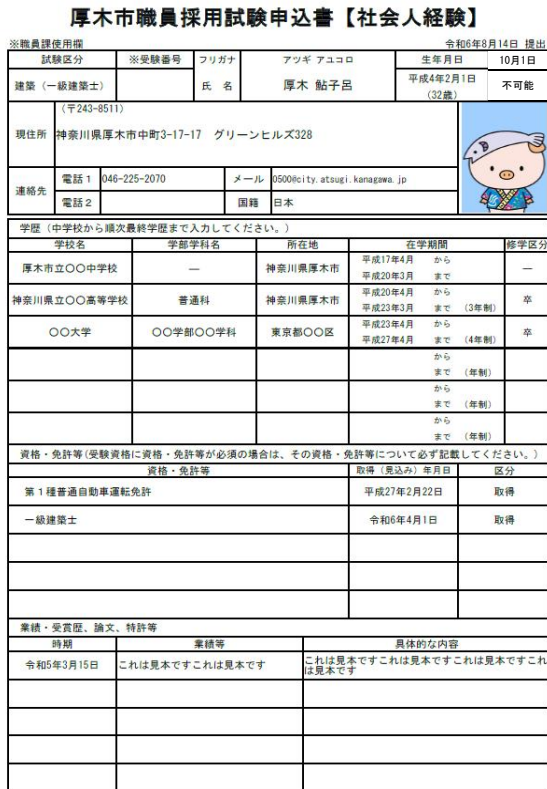 厚木市職員採用試験申込書【社会人経験】
※職員課使用欄 令和6年8月14日 提出
試験区分 ※受験番号 フリガナ アツギ アユコロ 生年月日 10月1日
建築(一級建築士) 氏 名 厚木 鮎子呂 平成4年2月1日 不可能
(32歳)
現住所 (〒243-8511)
神奈川県厚木市中町3-17-17 グリーンヒルズ328
連絡先 電話1 046-225-2070 メール 0500@city.atsugi.kanagawa.jp
電話2 国籍 日本
学歴(中学校から順次最終学歴まで入力してください。)
学校名 学部学科名 所在地 在学期間 修学区分
厚木市立〇〇中学校 ― 神奈川県厚木市 平成17年4月 から ―
平成20年3月 まで
神奈川県立〇〇高等学校 普通科 神奈川県厚木市 平成20年4月 から 卒
平成23年3月 まで (3年制)
〇〇大学 〇〇学部〇〇学科 東京都〇〇区 平成23年4月 から 卒
平成27年4月 まで (4年制)
から
まで (年制)
から
まで (年制)
から
まで (年制)
資格・免許等(受験資格に資格・免許等が必須の場合は、その資格・免許等について必ず記載してください。)
資格・免許等 取得(見込み)年月日 区分
第1種普通自動車運転免許 平成27年2月22日 取得
一級建築士 令和6年4月1日 取得
業績・受賞歴、論文、特許等
時期 業績等 具体的な内容
令和5年3月15日 これは見本ですこれは見本です これは見本ですこれは見本ですこれは見本ですこれ
は見本です